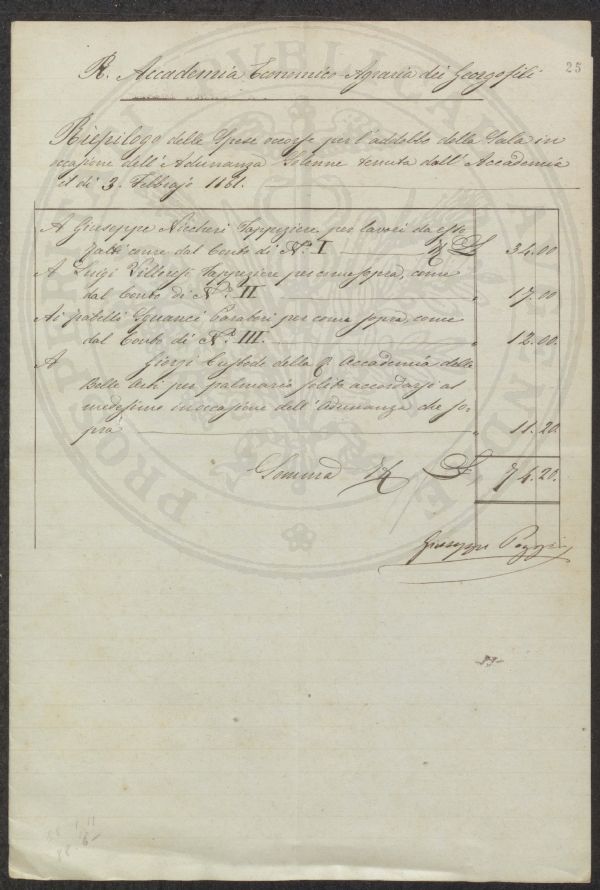 25
R. Accademia Economico-Agraria dei Georgofili
Riepilogo delle Spese occorse per l'addobbo della Sala in
occasione dell'Adunanza Solenne tenuta dall'Accademia
il dì 3. Febbrajo 1861.
A Giuseppe Niccheri Tappeziere per lavori da esso
fatti come dal Conto di N.º I £ 34.00
A Luigi Villoresi Tappeziere per come sopra, come
dal Conto di N.º II " 17.00
Ai fratelli Guanci Paratori per come sopra, come
dal Conto di N.º III. " 12.00.
A Giorgi Custode della R. Accademia delle
Belle Arti per palmario solito accordarsi al
medesimo in occasione dell'Adunanza che so-
pra " 11.20
Somma £ 74.20.
Giuseppe Poggi
PROSPERITATI PUBLICAE AUGENDAE